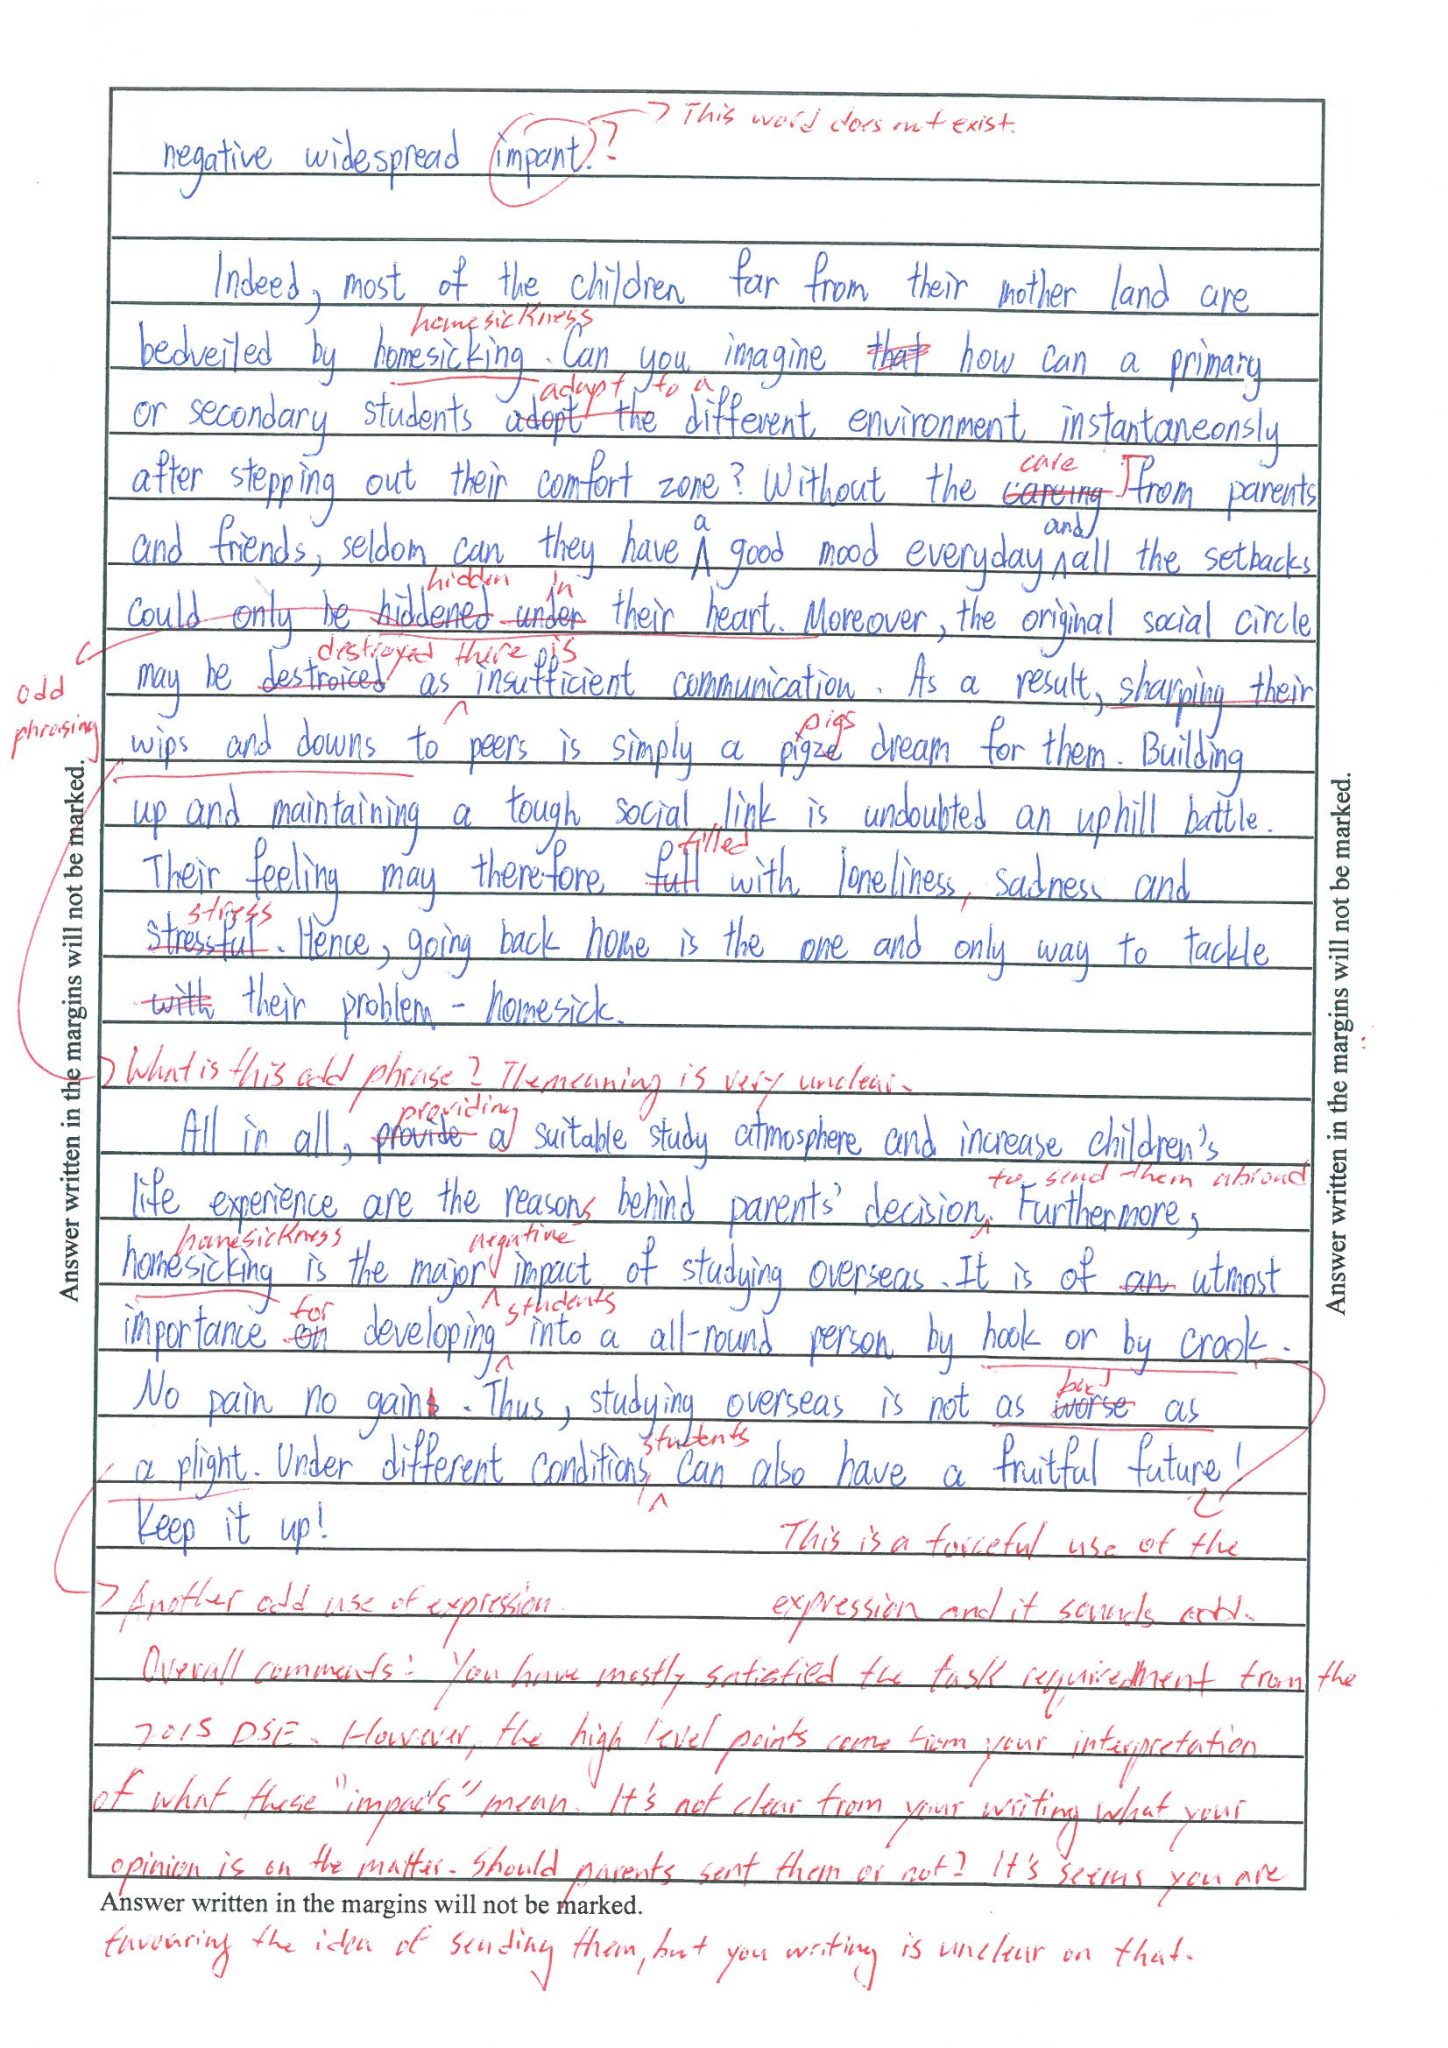 This word does not exist.
negative widespread impant. ?
Indeed, most of the children far from their mother land are
homesickness
bedveiled by homesicking. Can you imagine that how can a primary
adapt to a
or secondary students adopt the different environment instantaneonsly
care
after stepping out their comfort zone? Without the from parents
a and
and friends, seldom can they have good mood everyday all the setbacks
hidden in
could only be hiddened under their heart. Moreover, the original social circle
destroyed there is
may be destroiced as insufficient communication. As a result, sharping their
odd
phrasing
pigs
wips and downs to peers is simply a pigze dream for them. Building
up and maintaining a tough social link is undoubted an uphill battle.
filled
Their feeling may therefore full with loneliness, sadness and
stress
stressful. Hence, going back home is the one and only way to tackle
with their problem - homesick.
What is this odd phrase? The meaning is very unclear.
providing
All in all, provide a suitable study atmosphere and increase children's
to send them abroad
life experience are the reasons behind parents' decision. Furthermore,
homesickness negative
homesicking is the major impact of studying overseas. It is of an utmost
for students
importance on developing into a all-round person by hook or by crook.
bad
No pain no gain. Thus, studying overseas is not as worse as
students
a plight. Under different conditions, can also have a fruitful future!
Keep it up!
This is a forceful use of the
Another odd use of expression. expression and it sounds odd.
Overall comments: You have mostly satisfied the task requirement from the
2015 DSE. However, the high level points come from your interpretation
of what these "impacts" mean. It's not clear from your writing what your
opinion is on the matter. Should parents sent them or not? It's seems you are
Answer written in the margins will not be marked.
favouring the idea of sending them, but you writing is unclear on that.
Answer written in the margins will not be marked.
Answer written in the margins will not be marked.